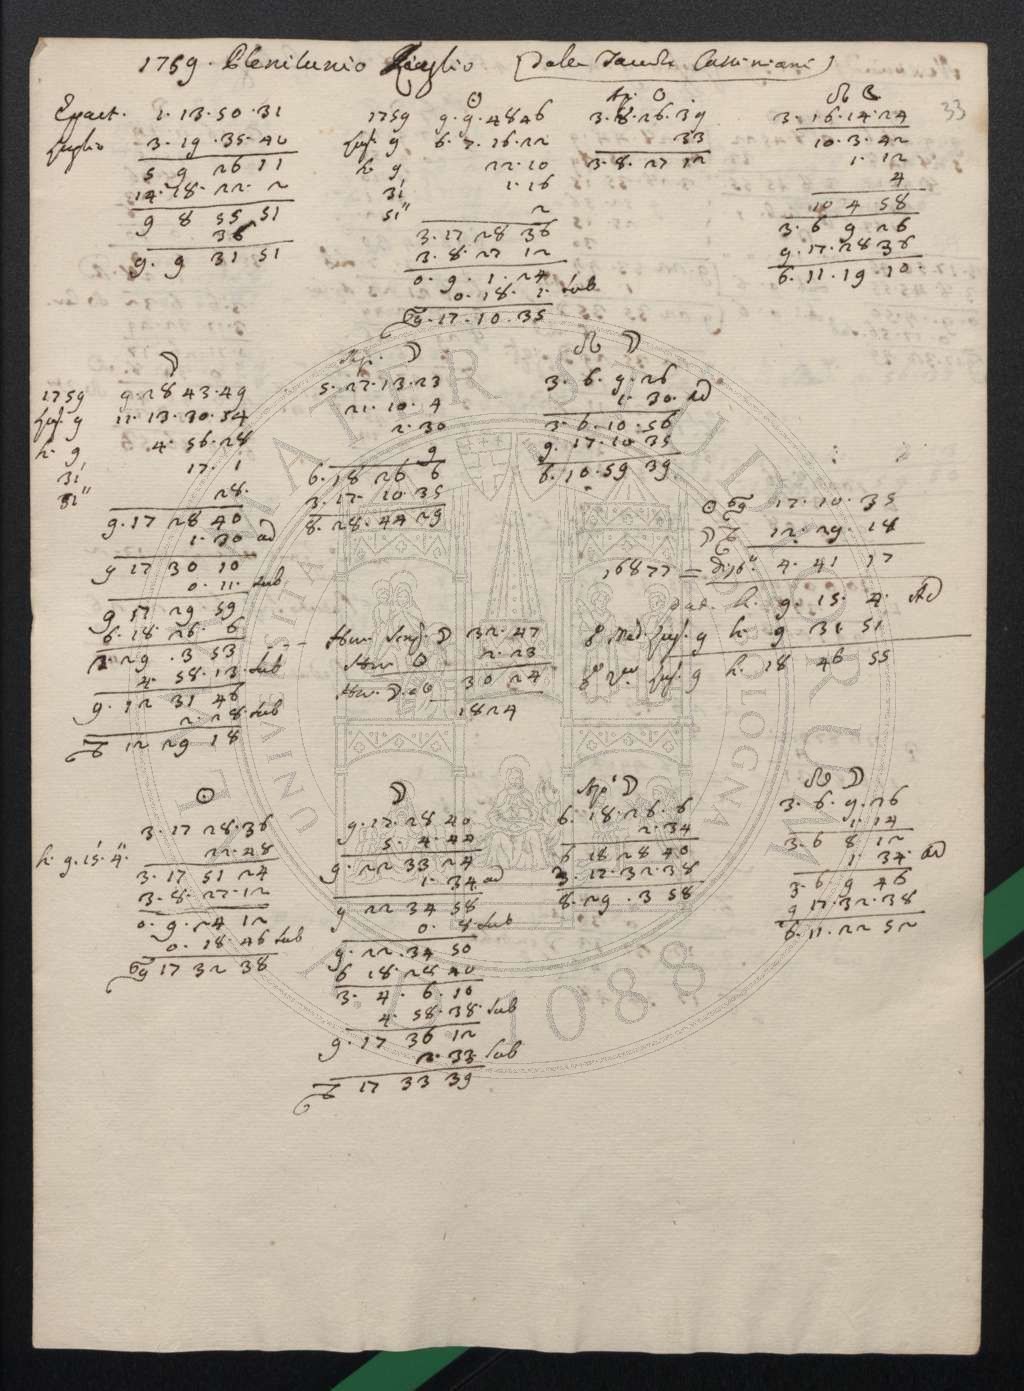 1759. Plenilunio Luglio (Dalle Tavole Cassiniane)
33
Epact. 1. 13. 50. 31
Luglio 3. 19. 35. 40
5 9 26 11
14. 18. 22. 2
9 8 55 51
36
9. 9 31 51
☉
1759 9. 9. 48 46
Lug. 9 6. 7. 16. 22
h. 9 22. 10
31' 1. 16
51" 2
3. 17 28 36
3. 8. 27 12
0. 9. 1. 24
0. 18. 1. sub
♋ 17. 10. 35
Ap. ☉
3. 8. 26. 39
33
3. 8. 27 12
☊ ☾
3. 16. 14. 24
10. 3. 42
1. 12
4
10 4 58
3. 6 9 26
9. 17. 28 36
6. 11. 19. 10.
☽
1759 9. 28 43. 49
Lug. 9 11. 13. 30. 54
h. 9 4. 56. 28
31' 17. 1
51" 28.
9. 17 28 40
1. 30 ad
9 17 30 10
0. 11. sub
9 17 29. 59
6. 18. 26. 6
2. 29. 3 53
4. 58. 13. sub
9. 12 31 46
2. 28. sub
♑ 12 29 18
Ap. ☽
5. 27. 13. 23
21. 10. 4
2. 30
9
6. 18 26 6
3. 17. 10 35
8. 28. 44 29
☊ ☽
3. 6. 9. 26
1. 30. ad
3. 6. 10. 56
9. 17. 10 35
6. 10. 59 39
☉ ♋ 17. 10. 35
☽ ♑ 12. 29. 18
16877 = Dist. 4. 41 17
dat. h. 9. 15. 4. Ad
☍ Med. Lug. 9 h. 9 31 51
☍ Vera Lug. 9 h. 18 46 55
Hor. Simp. ☽ 32. 47
Hor. ☉ 2. 23
Hor. ☽ a ☉ 30 24
1824
☉
3. 17 28. 36
h. 9. 15'. 4". 22. 48
3. 17 51 24
3. 8. 27. 12
0. 9. 24 12
0. 18. 46 sub
♋ 17 32 38
☽
9. 17. 28 40
5. 4. 44
9. 22 33 24
1. 34 ad
9 22 34 58
0. 8. sub
9. 22. 34 50
6 18. 28 40
3. 4. 6. 10
4. 58. 38. sub
9. 17 36 12
2. 33. sub
♑ 17 33 39
Ap. ☽
6. 18. 26. 6
2. 34
6 18 28 40
3. 17. 32. 38
8. 29. 3 58
☊ ☽
3. 6. 9. 26
1. 14
3. 6 8 12
1. 34. ad
3. 6 9 46
9 17. 32. 38
6. 11. 22 52
ALMA MATER STUDIORUM
UNIVERSITÀ DI BOLOGNA
A.D. 1088